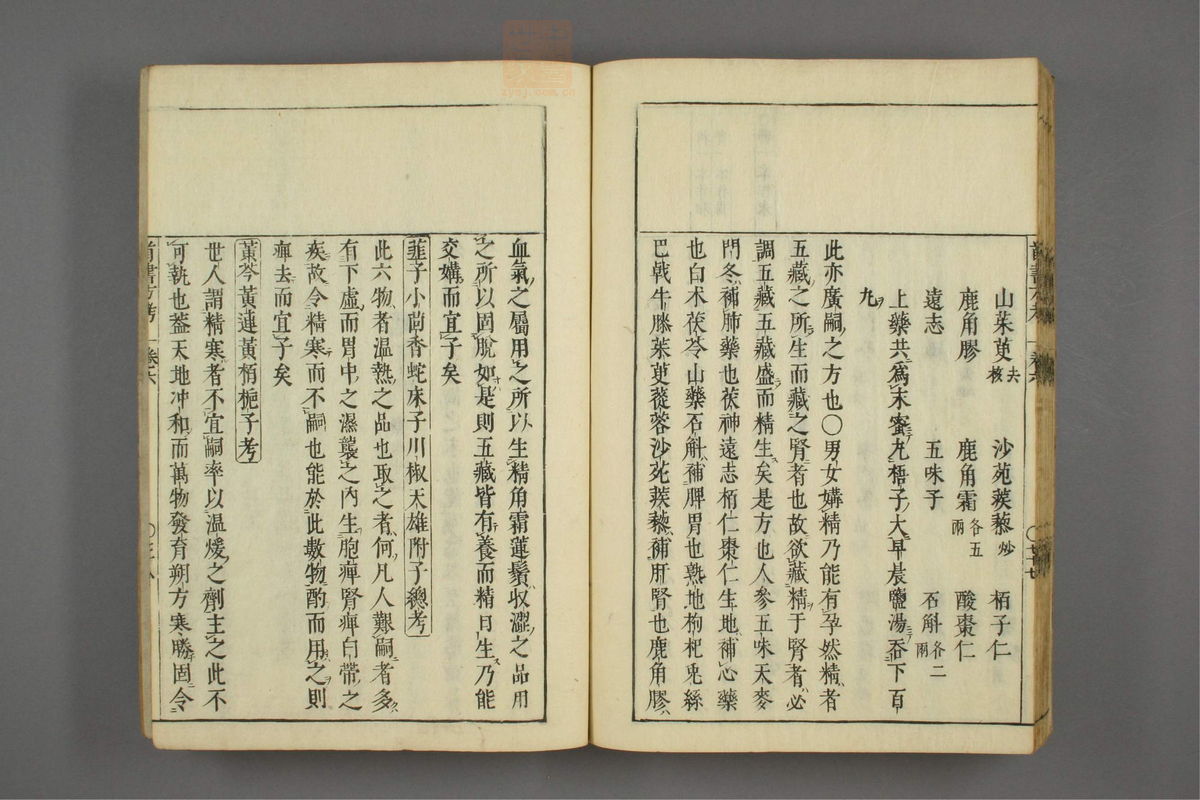 山茱萸去核 沙苑蒺藜炒 栢子仁
鹿角膠 鹿角霜各五兩 酸棗仁
遠志 五味子 石斛各二兩
上藥共爲末蜜九梧子大早晨鹽湯吞下百
九
此亦廣嗣之方也〇男女媾精乃能有孕然精者
五藏之所生而藏之腎者也故欲藏精于腎者必
調五藏五藏盛而精生矣是方也人參五味天麥
門冬補肺藥也茯神遠志栢仁棗仁生地補心藥
也白术茯苓山藥石斛補脾胃也熟地枸杞兎絲
巴戟牛膝茱萸蓯蓉沙苑蒺藜補肝腎也鹿角膠
血氣之屬用之所以生精角霜蓮鬚收澀之品用
之所以固脫如是則五藏皆有養而精日生乃能
交媾而宜子矣
韮子小茴香蛇床子川椒天雄附子總考
此六物者温熱之品也取之者何凡人艱嗣者多
有下虛而胃中之濕襲之內生胞痺腎痺白帶之
疾故令精寒而不嗣也能於此數物酌而用之則
痺去而宜子矣
黃芩黃連黃栢梔子考
世人謂精寒者不宜嗣率以温煖之劑主之此不
可執也葢天地冲和而萬物發育朔方寒勝固令